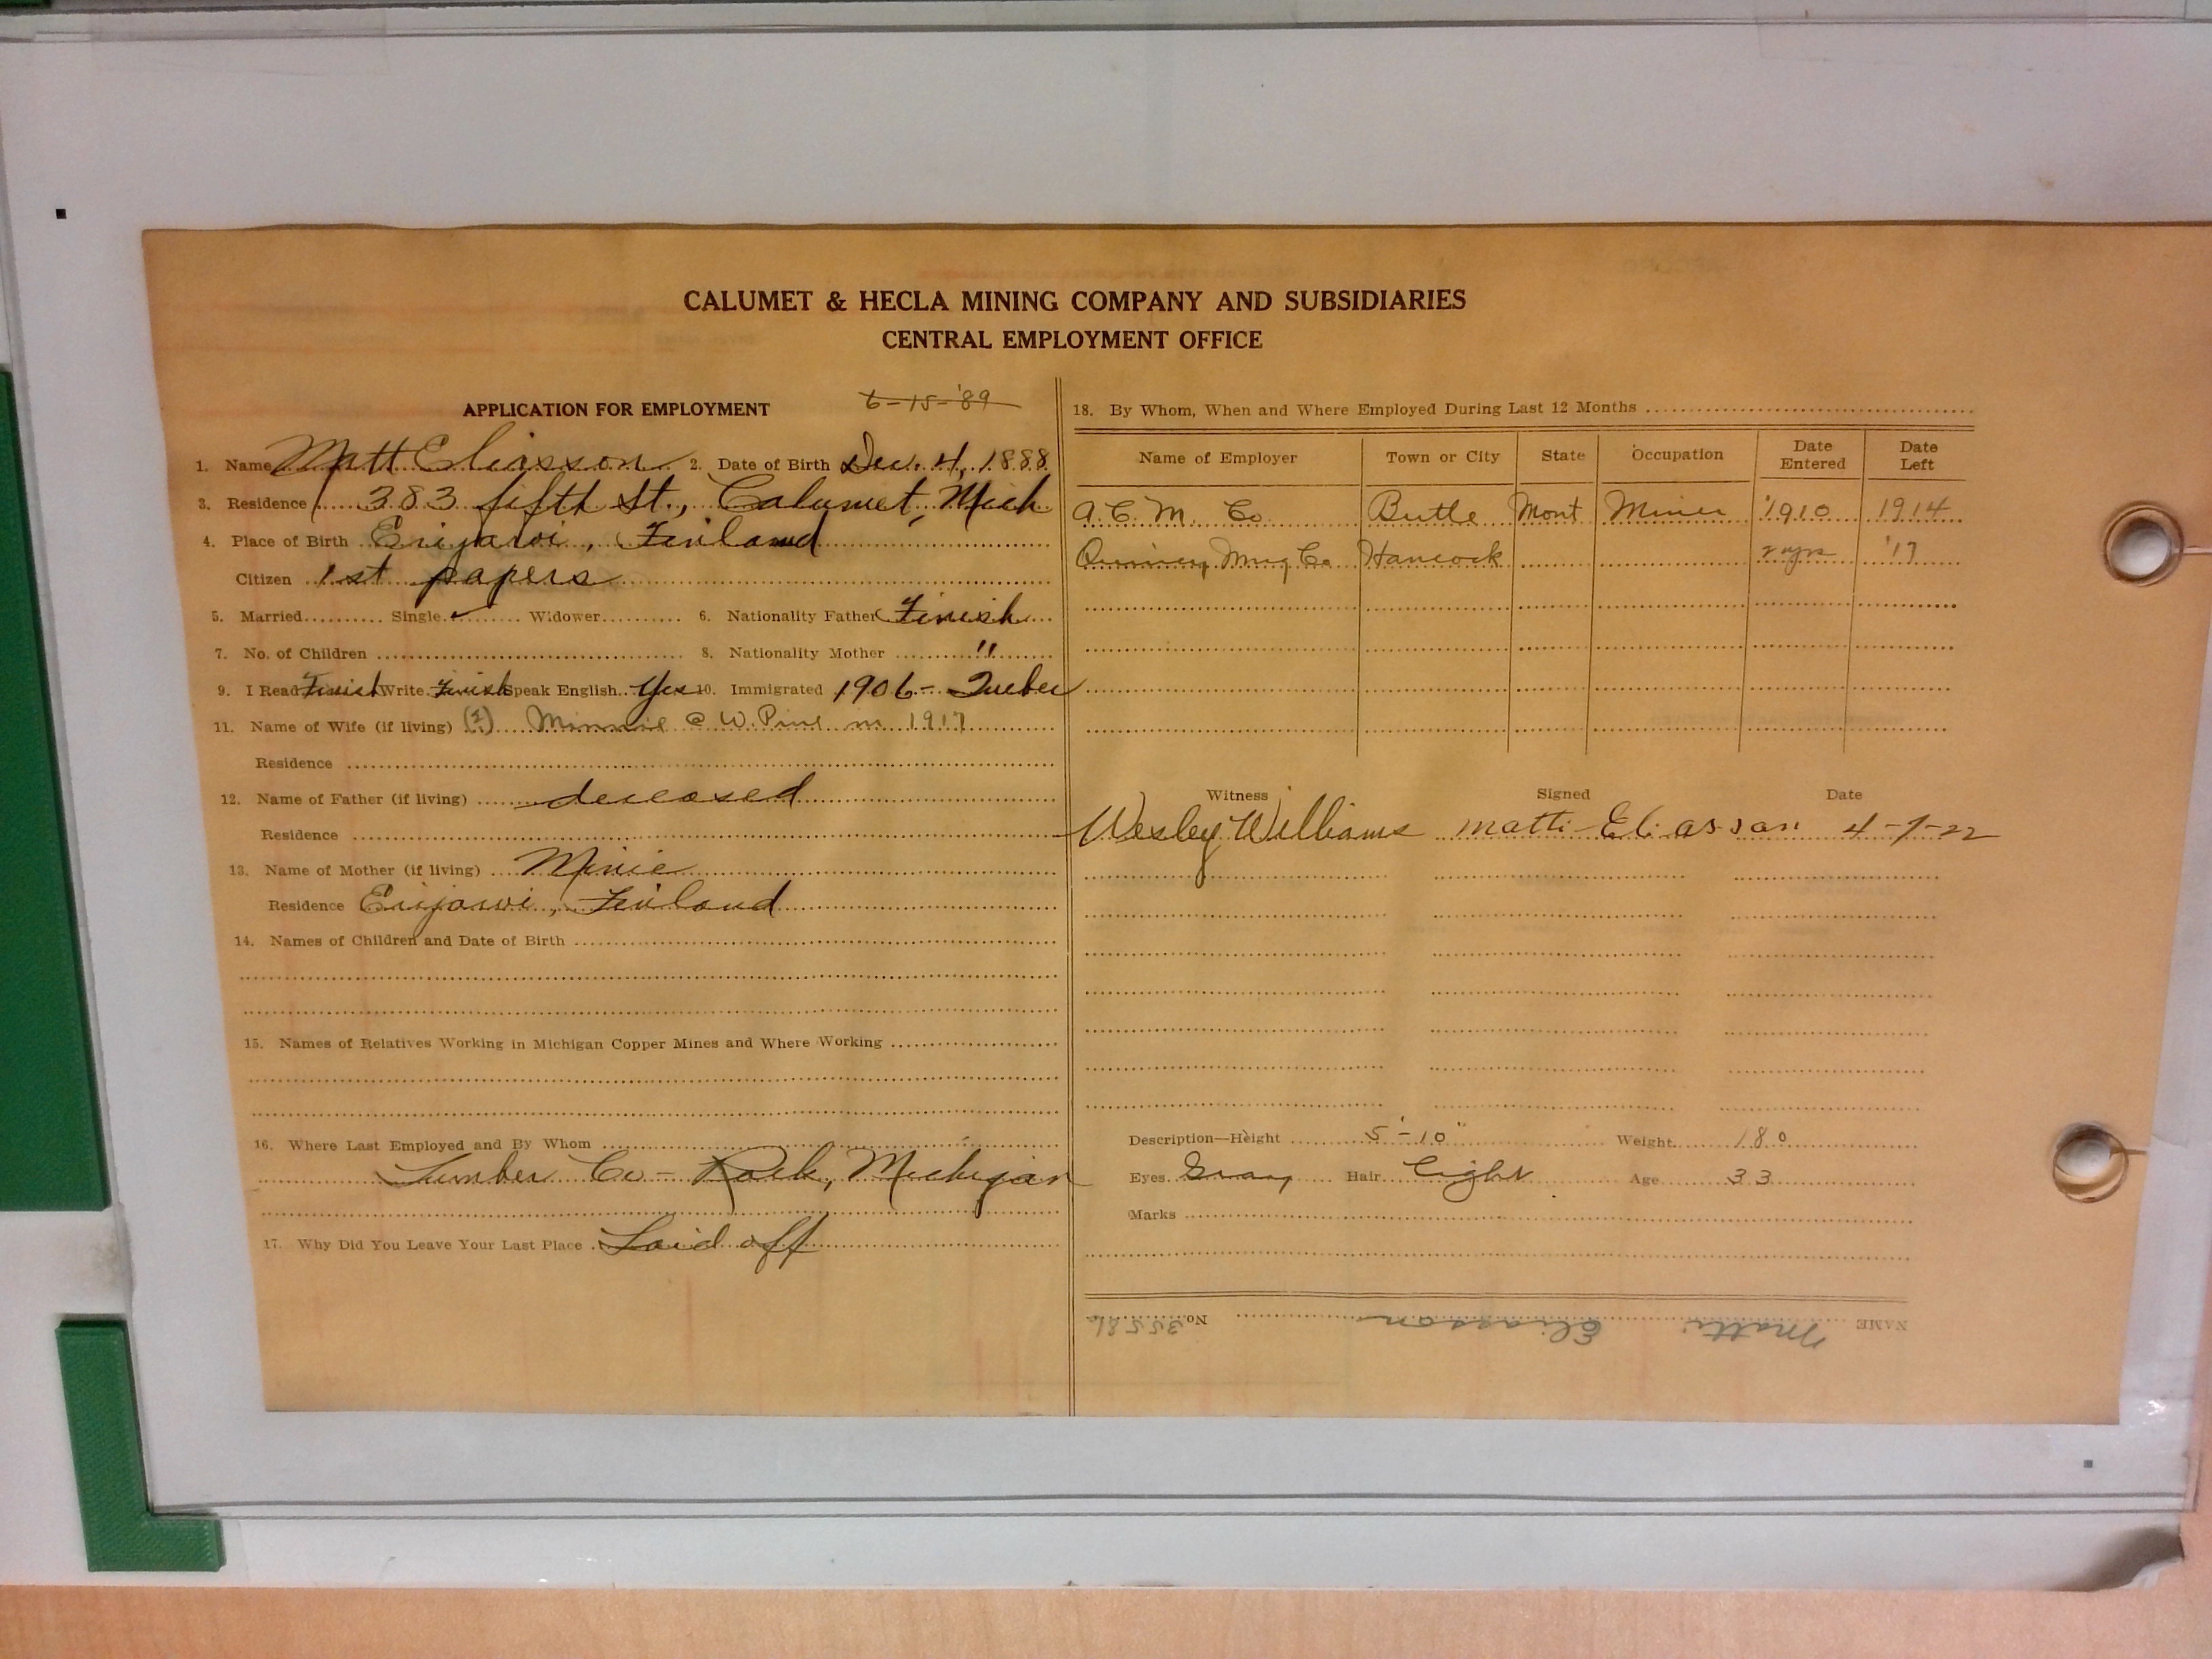 CALUMET & HECLA MINING COMPANY AND SUBSIDIARIES
CENTRAL EMPLOYMENT OFFICE
APPLICATION FOR EMPLOYMENT 6-15-'89
1. Name Matt Eliasson 2. Date of Birth Dec. 4, 1888
3. Residence 383 fifth St., Calumet, Mich
4. Place of Birth Finland
Citizen 1st papers
5. Married Single ✓ Widower 6. Nationality Father Finish
7. No. of Children 8. Nationality Mother "
9. I Read Finish Write Finish Speak English Yes 10. Immigrated 1906 - Quebec
11. Name of Wife (if living) (?) Minnie @ W. Pine m 1917
Residence
12. Name of Father (if living) deceased
Residence
13. Name of Mother (if living) Minie
Residence Finland
14. Names of Children and Date of Birth
15. Names of Relatives Working in Michigan Copper Mines and Where Working
16. Where Last Employed and By Whom
Lumber Co - Rock, Michigan
17. Why Did You Leave Your Last Place Laid off
18. By Whom, When and Where Employed During Last 12 Months
Name of Employer Town or City State Occupation Date Entered Date Left
A. C. M. Co Butte Mont Miner 1910 1914
Quincy Mng Co Hancock 2 yrs '17
Witness Signed Date
Wesley Williams Matti Eliasson 4-7-22
Description—Height 5'-10" Weight 180
Eyes Gray Hair Light Age 33
Marks
NAME Matti Eliasson No. 35586